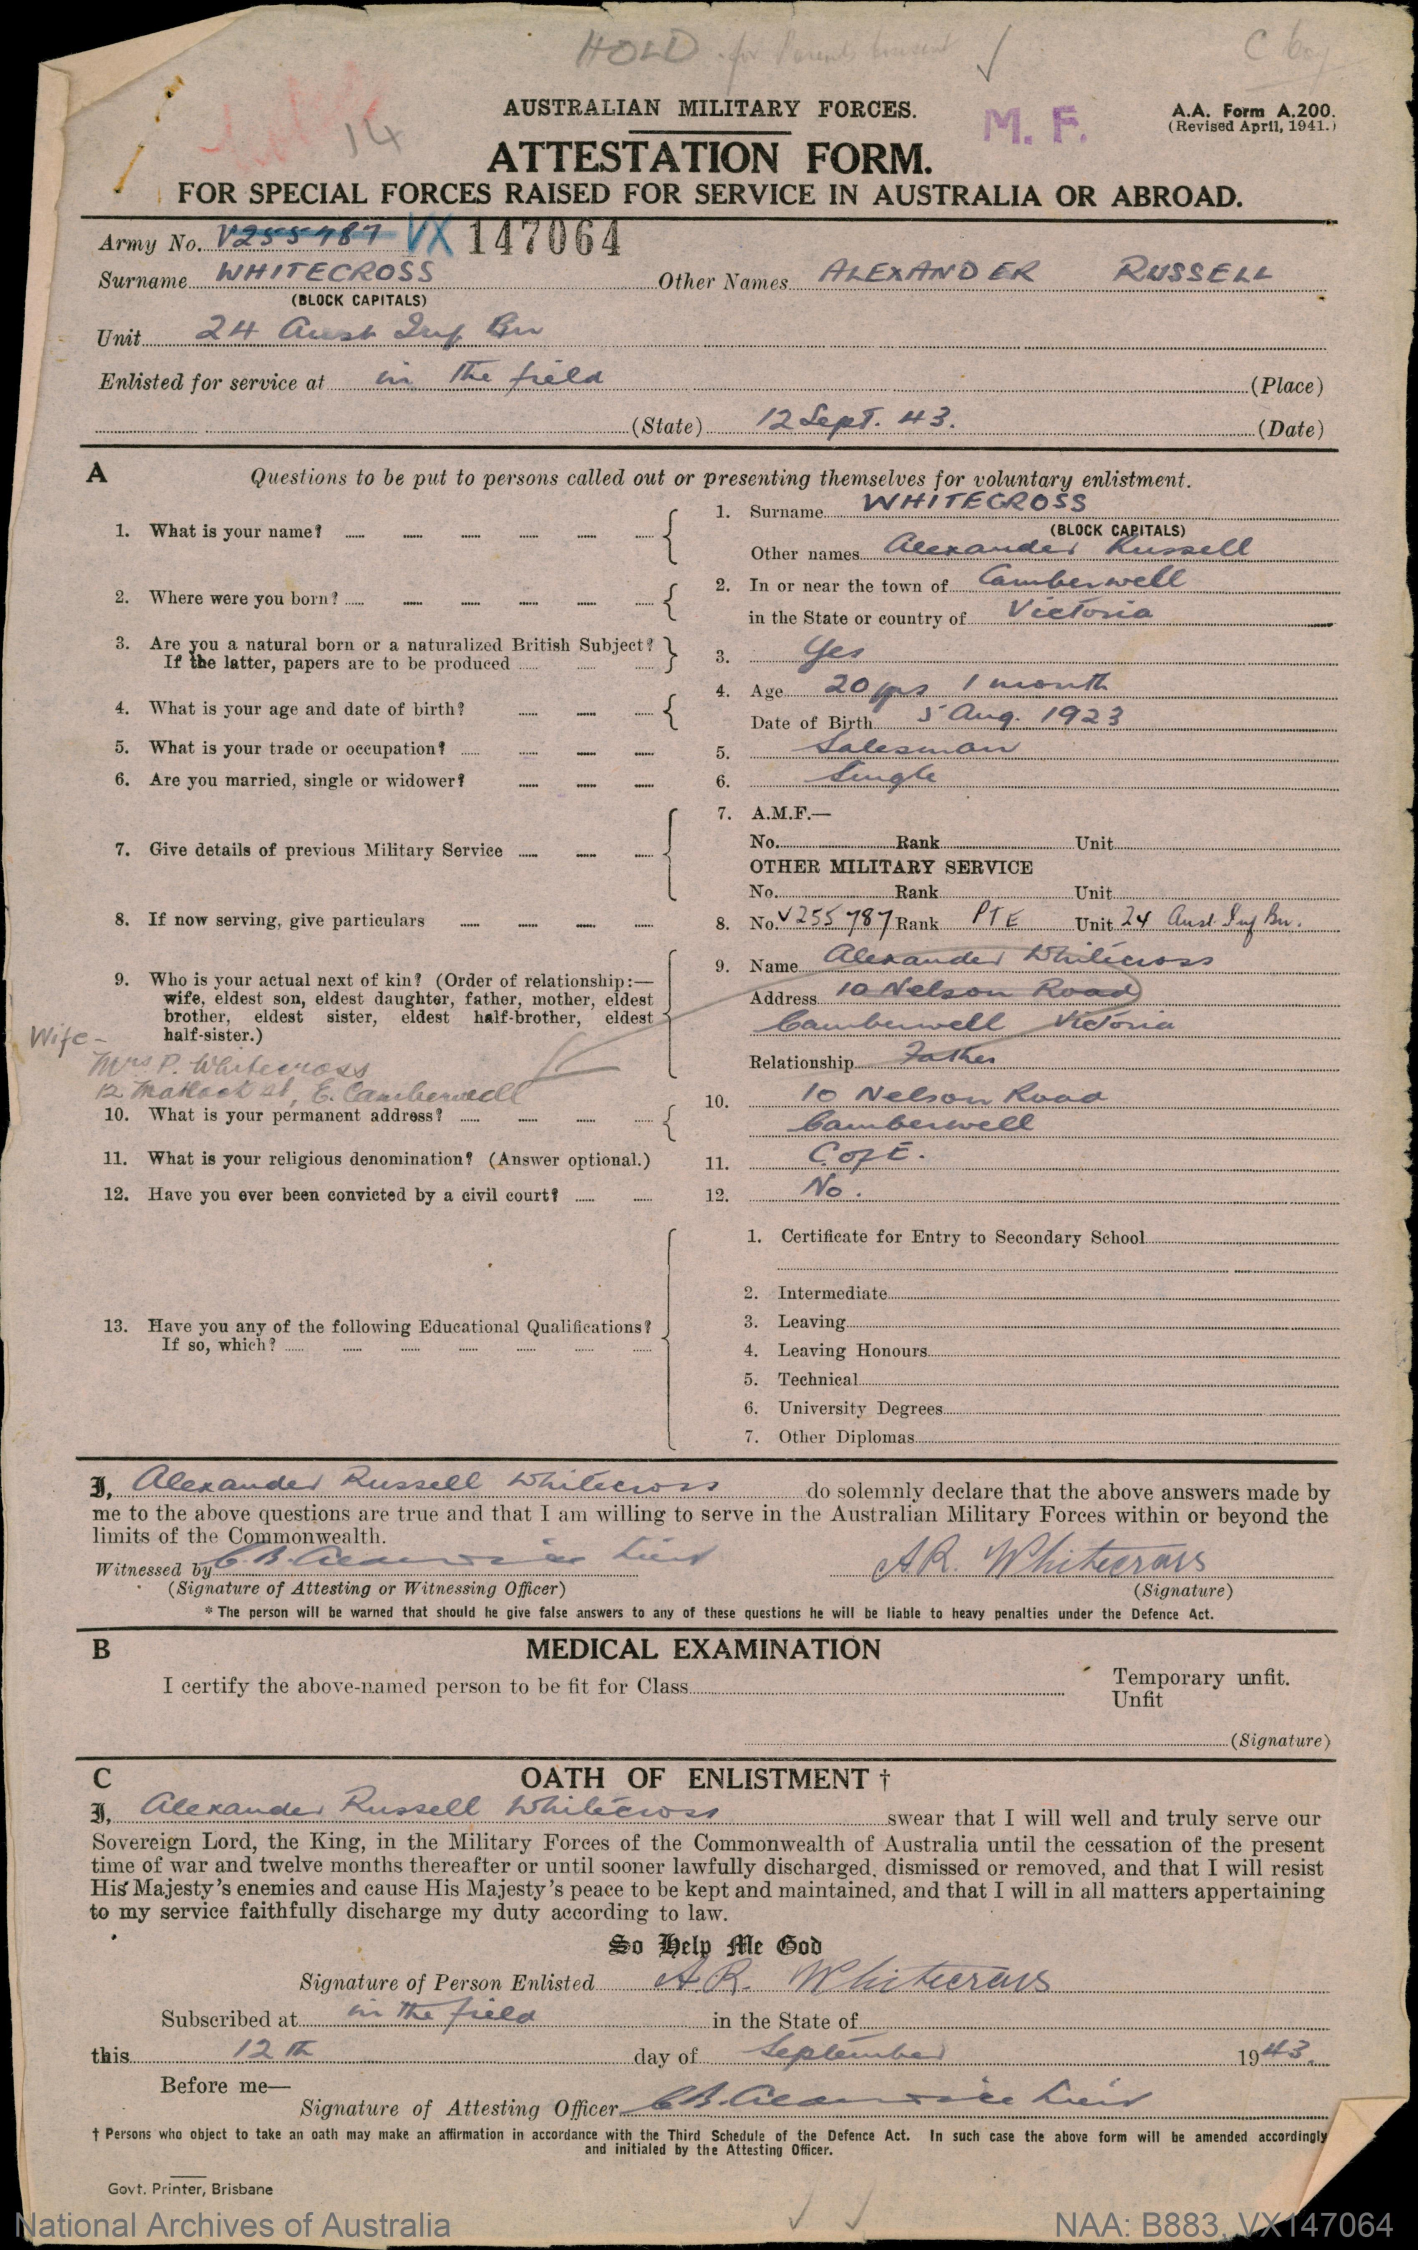 HOLD for Parents Consent
14
AUSTRALIAN MILITARY FORCES.
M. F.
A.A. Form A.200.
(Revised April, 1941.)
ATTESTATION FORM.
FOR SPECIAL FORCES RAISED FOR SERVICE IN AUSTRALIA OR ABROAD.
Army No. V255787 VX 147064
Surname WHITECROSS Other Names ALEXANDER RUSSELL
(BLOCK CAPITALS)
Unit 24 Aust Inf Bn
Enlisted for service at in the field (Place)
(State) 12 Sept. 43. (Date)
A Questions to be put to persons called out or presenting themselves for voluntary enlistment.
1. What is your name? 1. Surname WHITECROSS
(BLOCK CAPITALS)
Other names Alexander Russell
2. Where were you born? 2. In or near the town of Camberwell
in the State or country of Victoria
3. Are you a natural born or a naturalized British Subject?
If the latter, papers are to be produced 3. Yes
4. What is your age and date of birth? 4. Age 20 yrs 1 month
Date of Birth 5 Aug. 1923
5. What is your trade or occupation? 5. Salesman
6. Are you married, single or widower? 6. Single
7. Give details of previous Military Service 7. A.M.F.—
No. Rank Unit
OTHER MILITARY SERVICE
No. Rank Unit
8. If now serving, give particulars 8. No. V255787 Rank PTE Unit 24 Aust Inf Bn.
9. Who is your actual next of kin? (Order of relationship:—
wife, eldest son, eldest daughter, father, mother, eldest
brother, eldest sister, eldest half-brother, eldest
half-sister.)
9. Name Alexander Whitecross
Address 10 Nelson Road
Camberwell Victoria
Relationship Father
Wife -
Mrs P. Whitecross
12 Matlock st, E. Camberwell
10. What is your permanent address? 10. 10 Nelson Road
Camberwell
11. What is your religious denomination? (Answer optional.) 11. C. of E.
12. Have you ever been convicted by a civil court? 12. No.
13. Have you any of the following Educational Qualifications?
If so, which?
1. Certificate for Entry to Secondary School
2. Intermediate
3. Leaving
4. Leaving Honours
5. Technical
6. University Degrees
7. Other Diplomas
I, Alexander Russell Whitecross do solemnly declare that the above answers made by
me to the above questions are true and that I am willing to serve in the Australian Military Forces within or beyond the
limits of the Commonwealth.
Witnessed by C.B. Lieut A.R. Whitecross
(Signature of Attesting or Witnessing Officer) (Signature)
* The person will be warned that should he give false answers to any of these questions he will be liable to heavy penalties under the Defence Act.
B MEDICAL EXAMINATION
I certify the above-named person to be fit for Class Temporary unfit.
Unfit
(Signature)
C OATH OF ENLISTMENT †
I, Alexander Russell Whitecross swear that I will well and truly serve our
Sovereign Lord, the King, in the Military Forces of the Commonwealth of Australia until the cessation of the present
time of war and twelve months thereafter or until sooner lawfully discharged, dismissed or removed, and that I will resist
His Majesty's enemies and cause His Majesty's peace to be kept and maintained, and that I will in all matters appertaining
to my service faithfully discharge my duty according to law.
So Help Me God
Signature of Person Enlisted A.R. Whitecross
Subscribed at in the field in the State of
this 12th day of September 1943.
Before me—
Signature of Attesting Officer C.B. Lieut
† Persons who object to take an oath may make an affirmation in accordance with the Third Schedule of the Defence Act. In such case the above form will be amended accordingly
and initialed by the Attesting Officer.
Govt. Printer, Brisbane
National Archives of Australia NAA: B883, VX147064